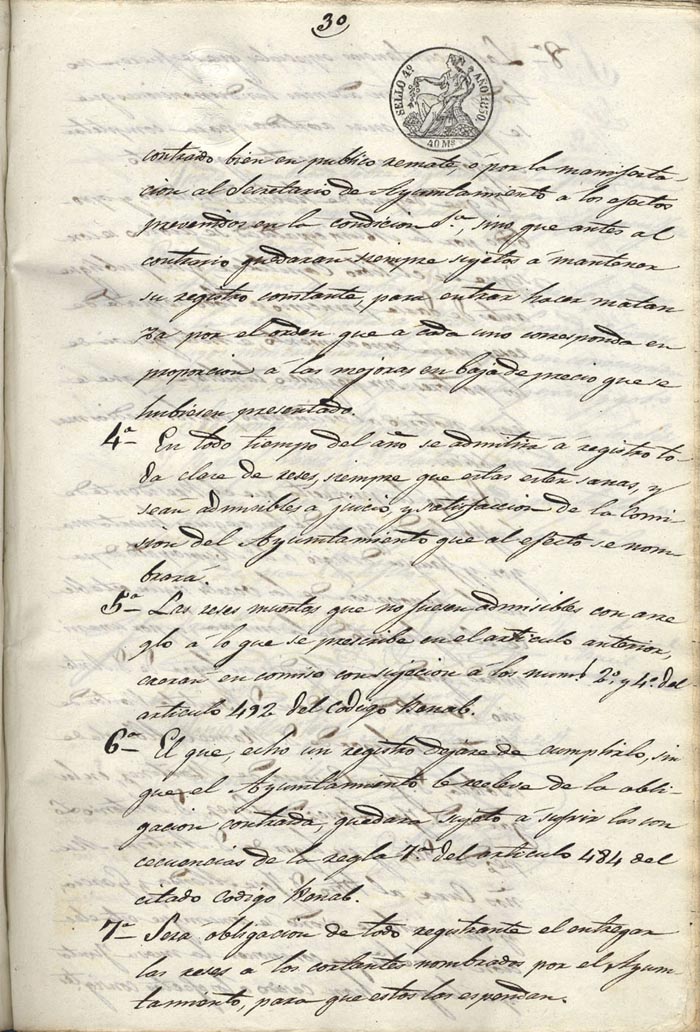 30
SELLO 4º AÑO 1850
40 Ms.
contrado bien en publico remate, o por la manifesta
cion al Secretario de Ayuntamiento a los efectos
prevenidos en la condicion 1ª, sino que antes al
contrario quedaran siempre sujetos á mantener
su registro constante, para entrar hacer matan
za por el orden que a cada uno corresponda en
proporcion á las mejoras en baja de precio que se
hubiesen presentado.
4ª En todo tiempo del año se admitirá á registro to-
da clase de reses, siempre que estas esten sanas, y
sean admisibles a juicio, y satisfaccion de la Comi
sion del Ayuntamiento que al efecto se nom
brará.
5ª Las reses muertas que no fuesen admisibles con arre
glo á lo que se prescribe en el articulo anterior,
caeran en comiso con sujecion á los num.s 2º y 4º del
articulo 492 del Codigo Penal.
6ª El que, echo un registro dejare de cumplirlo, sin
que el Ayuntamiento le releve de la obli-
gacion contraida, quedara sujeto á sufrir las con
cecuencias de la regla 7ª del articulo 484 del
citado Codigo Penal.
7ª Será obligacion de todo registrante el entregar
las reses a los cortantes nombrados por el Ayun-
tamiento, para que estos las espendan.